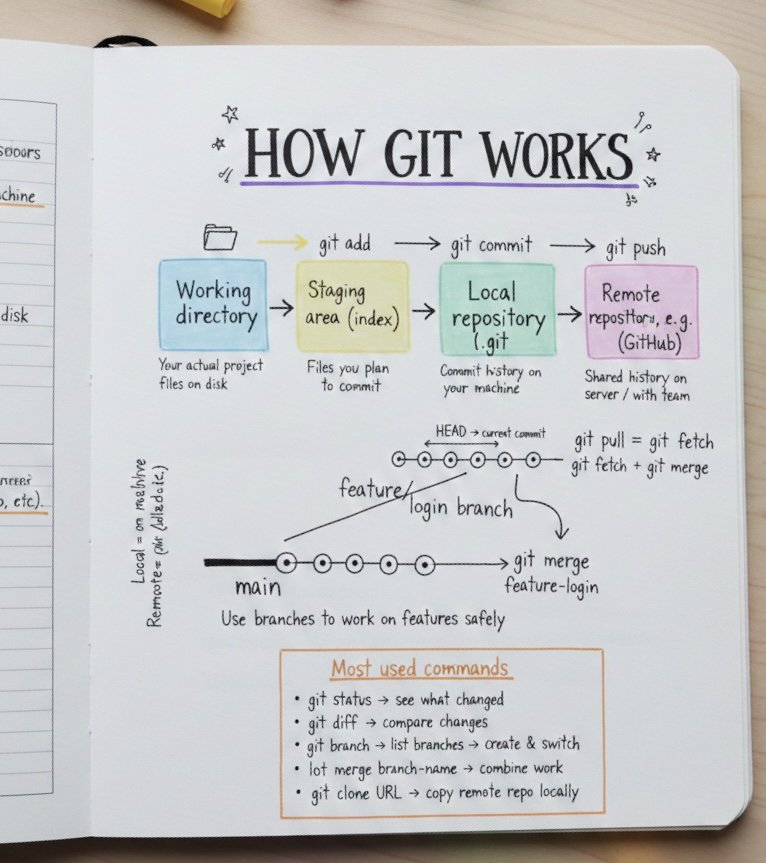 disk
etc).
HOW GIT WORKS
git add → git commit → git push
Working
directory
Staging
area (index)
Local
repository
(.git
Remote
e.g.
(GitHub)
Your actual project
files on disk
Files you plan
to commit
Commit history on
your machine
Shared history on
server / with team
HEAD → current commit
git pull = git fetch
git fetch + git merge
feature/
login branch
Local = on
main
git merge
feature-login
Use branches to work on features safely
Most used commands
• git status → see what changed
• git diff → compare changes
• git branch → list branches → create & switch
• lot merge branch-name → combine work
• git clone URL → copy remote repo locally